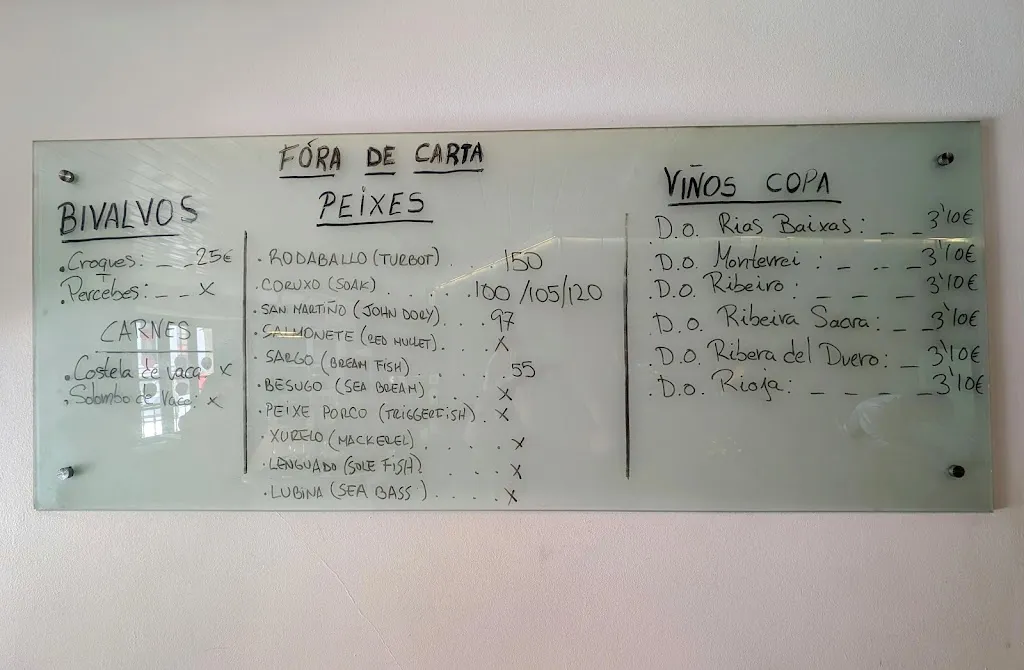 FÓRA DE CARTA
BIVALVOS
.Croques: _ _25€
.Percebes: _ _ X
CARNES
.Costela de vaca X
.Solombo de Vaca: X
PEIXES
. RODABALLO (TURBOT) . . . 150
.CORUXO (SOAK) . . . . . .100 /105/120
.SAN MARTIÑO (JOHN DORY). . . 97
.SALMONETE (RED MULLET). . . X
. SARGO (BREAM FISH) . . . .55
.BESUGO (SEA BREAM) . . . X
.PEIXE PORCO (TRIGGERFISH) . X
.XURELO (MACKEREL) . . . . X
.LENGUADO (SOLE FISH) . . . X
.LUBINA (SEA BASS ) . . . . . X
VIÑOS COPA
.D.O. Rias Baixas: _ _ 3'10€
.D.O. Monterrei : _ _ _ 3'10€
.D.O. Ribeiro: _ _ _ _ 3'10€
.D.O. Ribeira Sacra: _ _3'10€
.D.O. Ribera del Duero: _ 3'10€
.D.O. Rioja: _ _ _ _ _3'10€